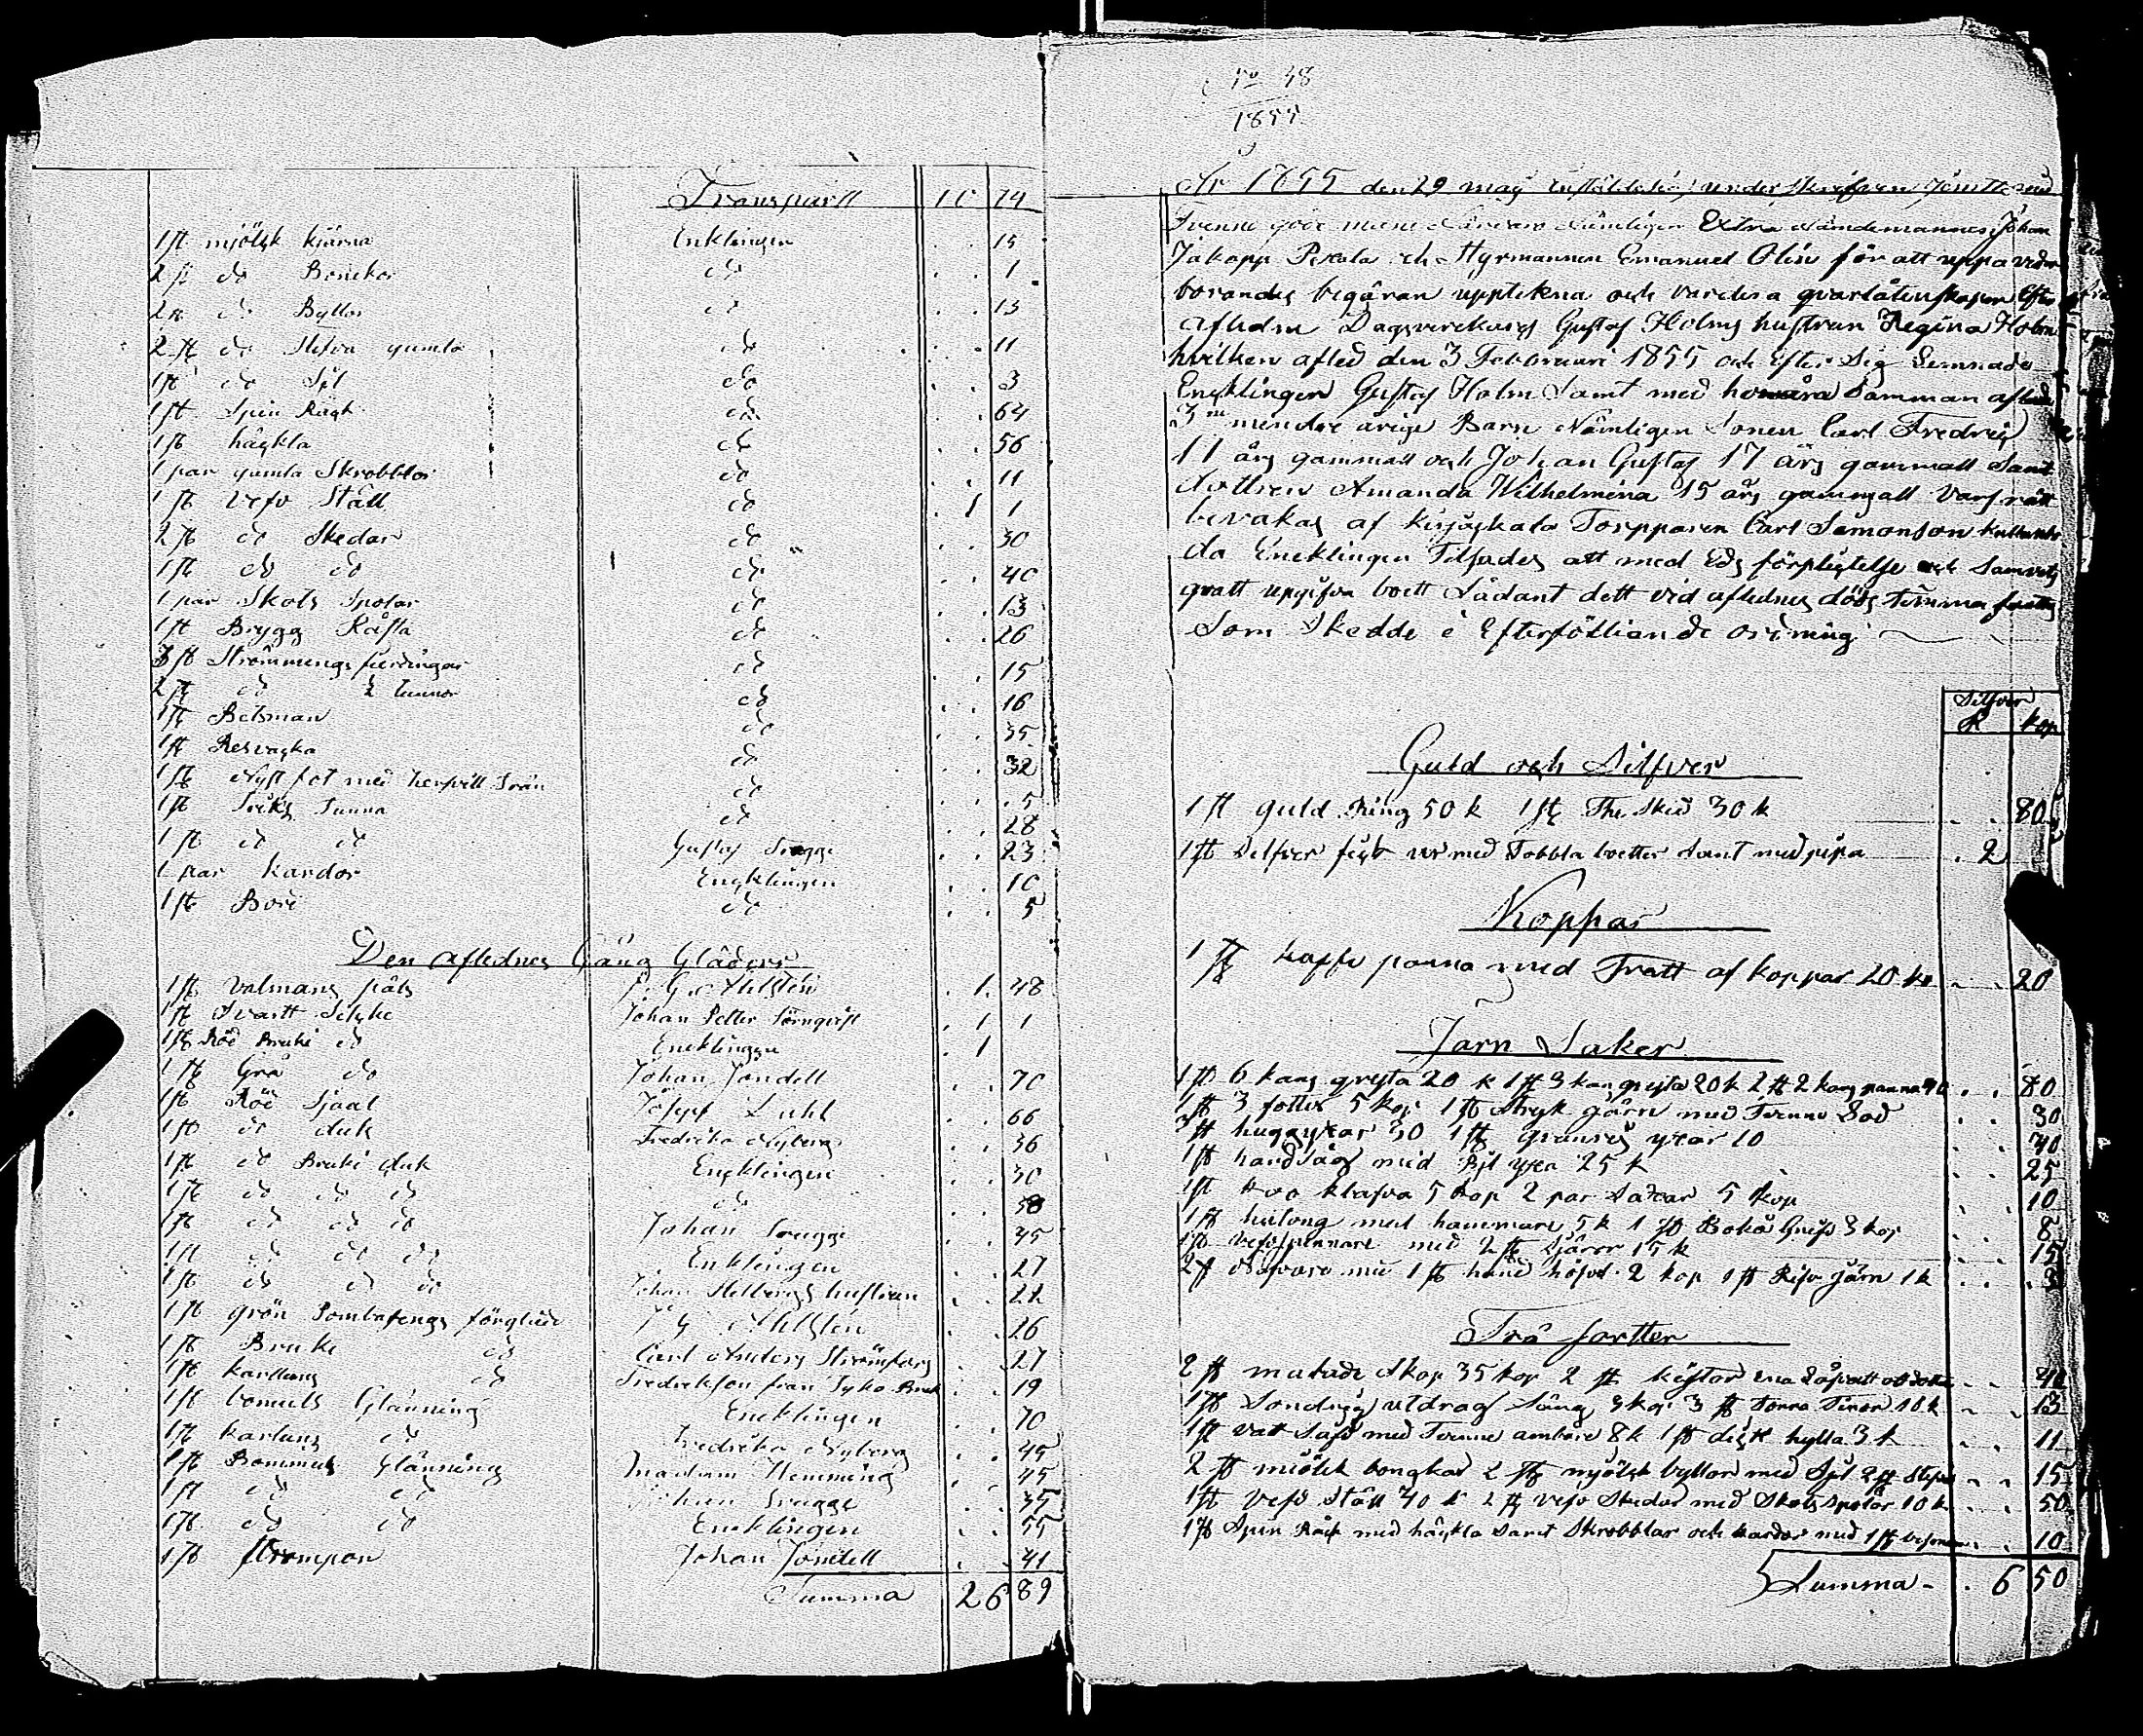 Transport 1 C 74
1 st mjölsk kjärna Enklingen . . 15
2 st do Bonckor do . . 1
2 st do Byttor do . . 13
2 st do Stefva gamla do . . 11
1 st do Sjl do . . 3
1 st Spin Råck do . . 64
1 st häckla do . . 56
1 par gamla Skrobblor do . . 11
1 st Vefv Ståll do . 1 1
2 st do Skedar do . . 30
1 st do do do . . 40
1 par Skots Spolar do . . 13
1 st Brygg Kåsla do . . 26
3 st Strömmings fierdingar do . . 15
2 st do ½ tunnor do . . 16
1 st Betsman do . . 35
1 st Resvagka do . . 32
1 st Nyst fot med herfvill Trän do . . 5
1 st Triks Tunna do . . 28
1 st do do Gustaf Sragge . . 23
1 par kardor Encklingen . . 10
1 st Bord do . . 5
Den aflednes Gång Cläder
1 st valmans päls J. G. Ahlsten . 1. 48
1 st Svartt Stycke Johan Petter Törnqvist . 1 1
1 st Röd Bruki do Encklingen . 1
1 st Grå do Johan Jondell . . 70
1 st Röd Sjaal Josef Luhl . . 66
1 st do duk Fredrika Nyberg . . 36
1 st do Bruki duk Encklingen . . 30
1 st do do do do . . 58
1 st do do do Johan Sragge . . 45
1 st do do do Enklingen . . 27
1 st do do do Johan Stelbergs hustrun . . 22
1 st grön Bombasengs förgläde J G Ahlsten . . 26
1 st Bruki do Carl Anders Strömfors . . 27
1 st kartuns do Fredrekson från Tyko Bruk . . 19
1 st bomuls Glänning Encklingen . . 70
1 st kartuns do Fredrika Nyberg . . 45
1 st Bommuls Glänning Madam Hemming . . 45
1 st do do Johan Sragge . . 35
1 st do do Encklingen . . 55
1 st strompor Johan Jondell . . 41
Summa 26 89
No 48
1855
År 1855 den 29 maij instälde sig under skrifven Jemte med
Tvenne gode mene Närvaro Nämligen Extra Nämdemannen Johan
Jakopp Pexala och Styrmannen Emanuel Olin för att uppa veder
borandes begäran upptekna och vardera qvarlåtenskapen Efter
afledne Dagsverckares Gustaf Holms hustrun Regina Holm
hvilken afled den 3 Februari 1855 och Efter Sig Lemnade
Encklingen Gustaf Holm Samt med honåra Samman aflade
3ne mindre årige Barn Nämligen Sonen Carl Fredrig
11 års gammall och Johan Gustaf 17 års gammall Samt
dottren Amanda Wilhelmina 15 års gammall Vars rätt
bevakas af Torpparen Carl Semonson
da Encklingen Tilsades att med Eds förpligtelse och Samvets
gratt upgifva boett Sådant dett vid aflednes döds timma fants
Som Skedde i Efterföllian de ordning
Silfver
R kop
Guld och Silfver
1 st guld Ring 50 k 1 st The Sked 30 k . . 80
1 st Silfver fick ur med Tobbla boetter Samt med pipa . 2
Koppar
1 st kaffe panna med Tratt af koppar 20 k . . 20
Järn Saker
1 st 6 kans gryta 20 k 1 st 3 kan gryta 20 k 2 st 2 kans panna 40 . . 80
1 st 3 fotter 5 kop 1 st Stryk Järn med Tvenne Lod . . 30
3 st huggyxar 30 1 st yxar 10 . . 40
1 st handsåg med Bjl yxa 25 k . . 25
1 st Hvo klafva 5 kop 2 par Saxar 5 kop . . 10
1 st hielong med hammare 5 k 1 st Bokå Gnifv 3 kop . . 8
1 st vefspennare med 2 st Skäror 15 k . . 15
2 st Nafvare med 1 st hand höfvel 2 kop 1 st Rifv Järn 1 k . . 3
Trä sortter
2 st matade Skop 35 kop 2 st kistor . . 40
1 st Sondrig utdrag Säng 3 kop 3 st torra Tinor 10 k . . 13
1 st vatt Safv med Tvenne ambare 8 k 1 st disk hylla 3 k . . 11
2 st miölck bongkar 2 st mjölsk byttor med Sjl 2 st Stefva . . 15
1 st Vefv Ståll 40 k 2 st vefv Skedar med Skots spolar 10 k . . 50
1 st Spin Råck med häckla samt Skrobblar och kardor med 1 st besman . . 10
Summa - . 6 50